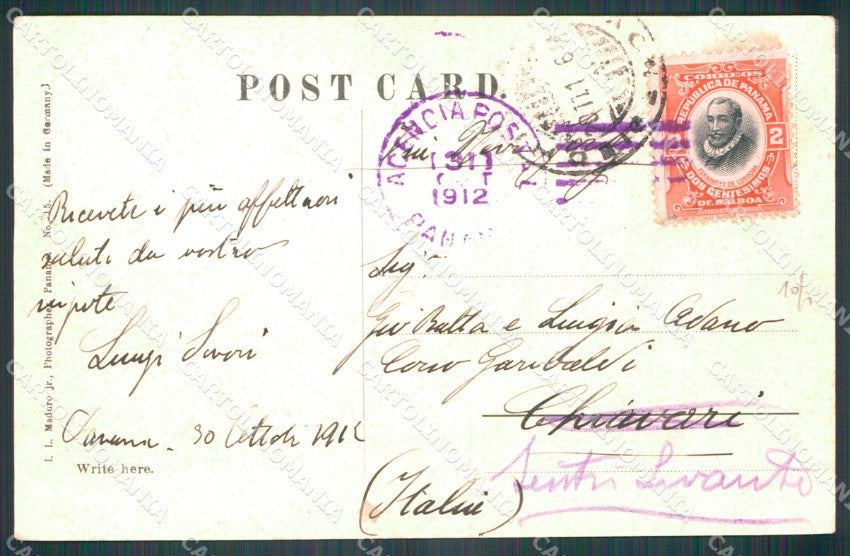 POST CARD.
I. L. Maduro jr., Photographer, Panama. No. 5. (Made in Germany.)
AGENCIA POSTAL
31
1912
PANAMA
CORREOS
REPUBLICA DE PANAMA
2
DOS CENTESIMOS
DE BALBOA
Ricevete i più affettuosi
saluti da vostro
nipote
Luigi
Panama. 30 1912
Write here.
via New York
Sig.
Gio Batta e Luigia Adano
Corso Garibaldi
Chiavari
Sestri Levante
(Italia)
CARTOLINOMANIA